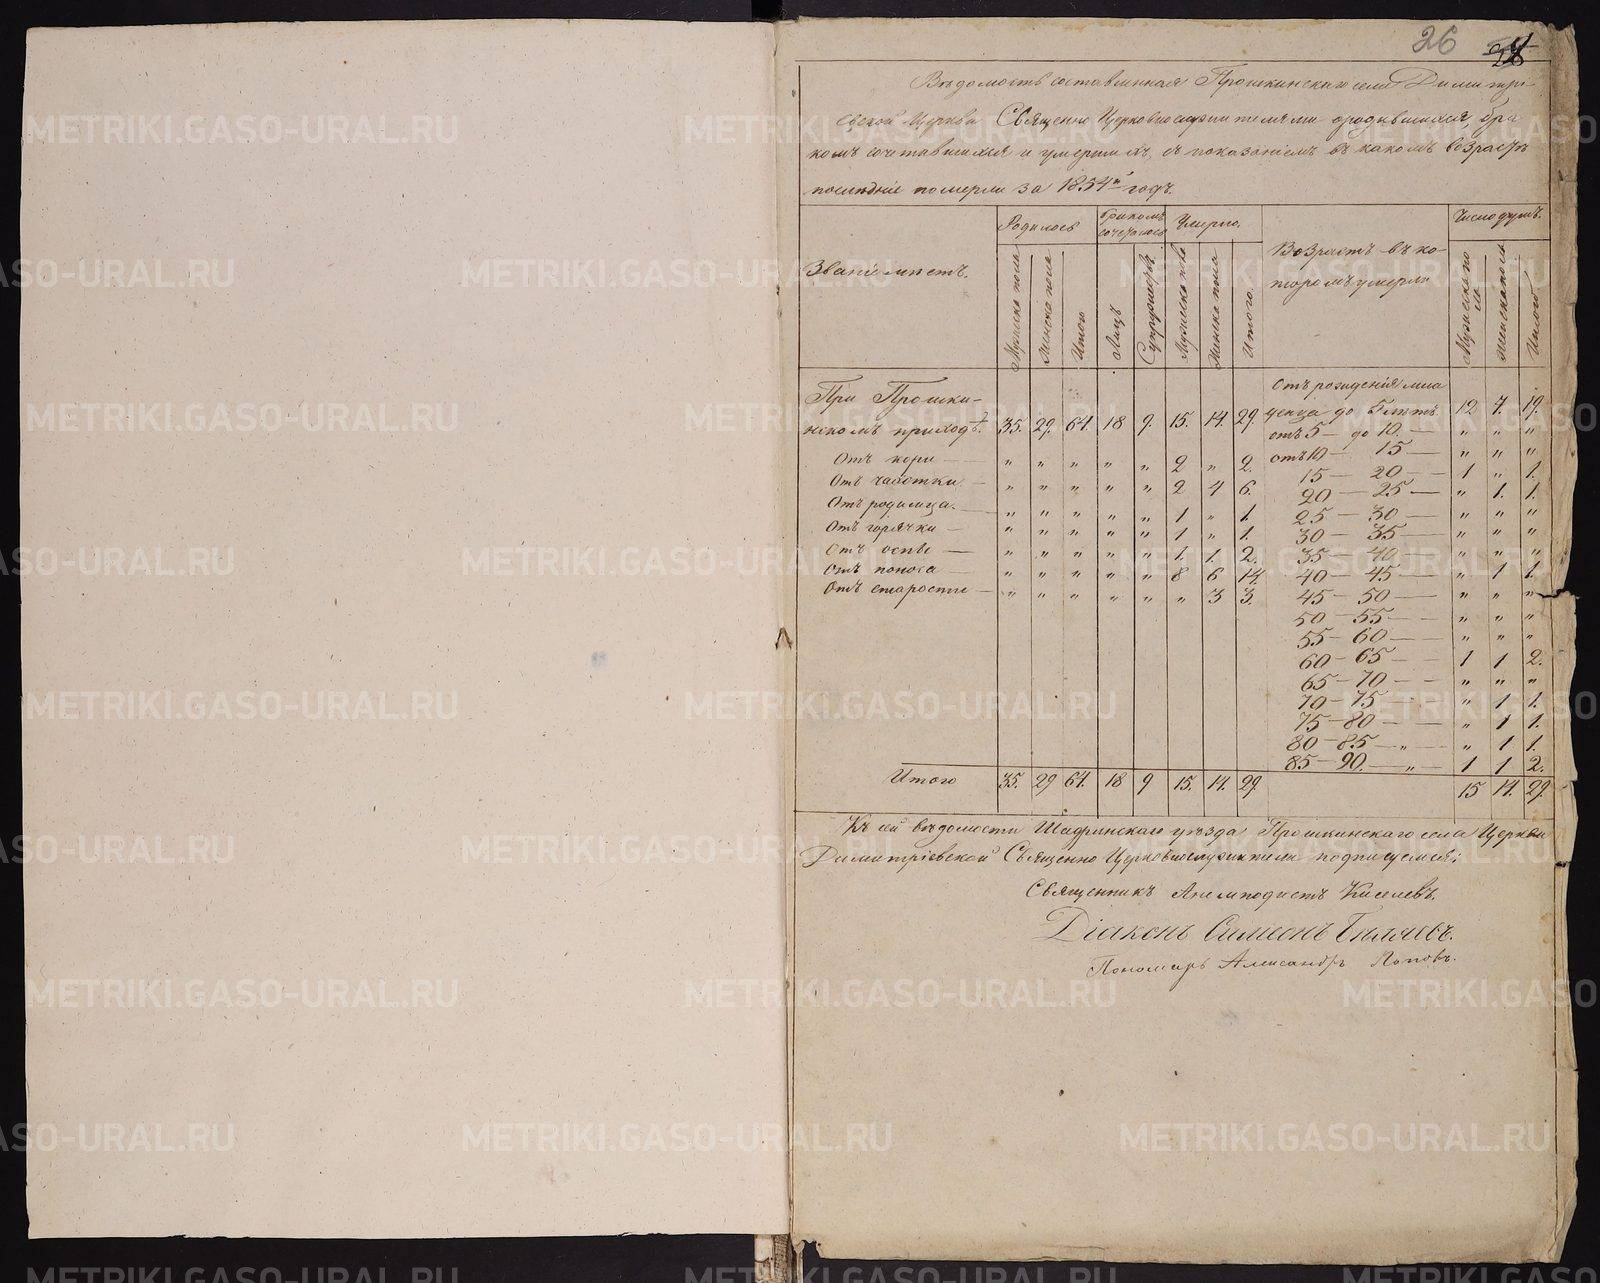 26
Вѣдомость составленная Прошкинскаго села Димитрі-
евской Церкви Священно Церковнослужителями о родившихся, бра-
комъ сочетавшихся и умершихъ, съ показаніемъ въ какомъ возрастѣ
послѣдніе померли за 1854й годъ.
Званіе мѣстъ. Родилось Бракомъ сочеталось Умерло. Возрастъ въ ко- Число душъ.
торомъ умерли
Мужска пола Женска пола Итого Лицъ Супружествъ Мужска пола Женска пола Итого. Мужеска по
ла Женска пола Итого
При Прошки-
нскомъ приходѣ. 35. 29. 64. 18 9. 15. 14. 29.
Отъ кори — " " " " " 2 " 2.
Отъ чахотки — " " " " " 2 4 6.
Отъ родимца. — " " " " " 1 " 1.
Отъ горячки — " " " " " 1 " 1.
Отъ оспы — " " " " " 1. 1. 2.
Отъ поноса — " " " " " 8 6 14.
Отъ старости — " " " " " " 3 3.
Отъ рожденія мла
денца до 5 лѣтъ. 12 7. 19.
отъ 5 — до 10. — " " "
отъ 10 — 15 — " " "
15 — 20 — 1 " 1.
20 — 25 — " 1. 1.
25 — 30 — " " "
30 — 35 — " " "
35 — 40 — " " "
40 — 45 — " 1 1.
45 — 50 — " " "
50 — 55 — " " "
55 — 60 — " " "
60 — 65 — 1 1 2.
65 — 70 — " " "
70 — 75 — " 1 1.
75 — 80 — " 1 1.
80 — 85 — " — " 1 1.
85 — 90. — " — 1 1 2.
Итого 35. 29 64. 18 9 15. 14. 29. 15 14. 29.
Къ сей вѣдомости Шадринскаго уѣзда Прошкинскаго села Церкви
Димитріевской Священно Церковнослужители подписуемся:
Священникъ Анемподистъ Киселевъ.
Діаконъ Симеонъ Биляевъ.
Пономарь Александръ Поповъ.
METRIKI.GASO-URAL.RU